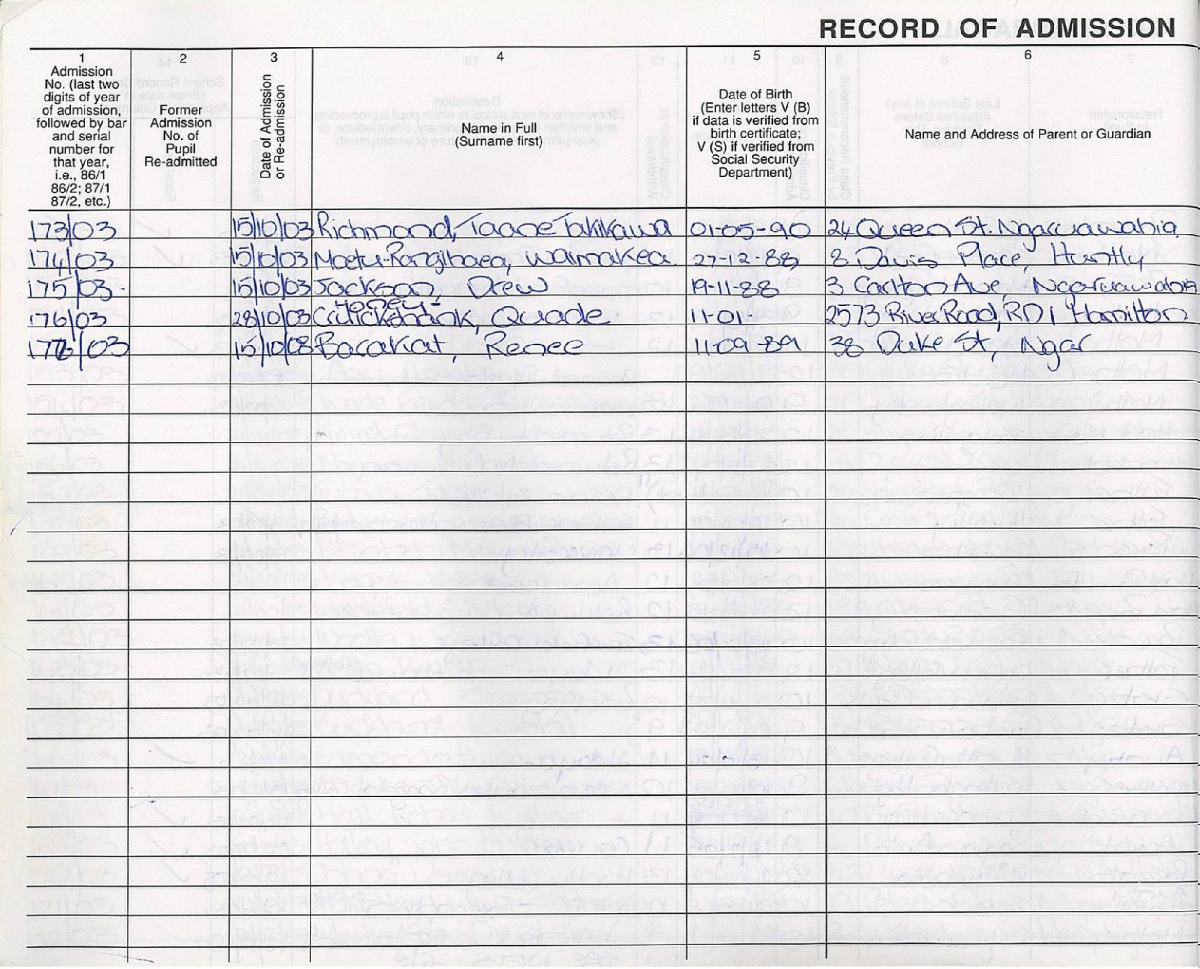 RECORD OF ADMISSION
1 2 3 4 5 6
Admission No. (last two digits of year of admission, followed by bar and serial number for that year, i.e., 86/1 86/2; 87/1 87/2, etc.)
Former Admission No. of Pupil Re-admitted
Date of Admission or Re-admission
Name in Full (Surname first)
Date of Birth (Enter letters V (B) if data is verified from birth certificate; V (S) if verified from Social Security Department)
Name and Address of Parent or Guardian
173/03 15/10/03 Richmond, Taane Takikawa 01-05-90 24 Queen St. Ngaruawahia
174/03 15/10/03 Maetu-Rangihaea, Waimakea. 27-12-88 8 Davis Place, Huntly
175/03 15/10/03 Jackson, Drew 19-11-88 3 Carlton Ave, Ngaruawahia
176/03 28/10/03 Cruickshank, Quade 11-01- 2573 River Road, RD1 Hamilton
/03 15/10/03 Barakat, Renee 11-09-89 38 Duke St, Ngar